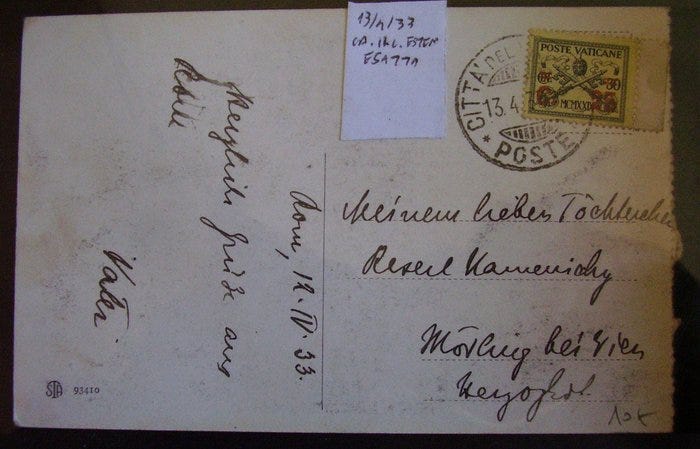 13/4/33
ESATTA
CITTÀ DEL
13.4
* POSTE
POSTE VATICANE
30
25
MCMXXIX
Herzliche Grüße aus
Vater
Rom, 12.IV.33.
Meinem lieben Töchterchen
Reserl Kamenicky
Mödling bei Wien
STA 93410
10€